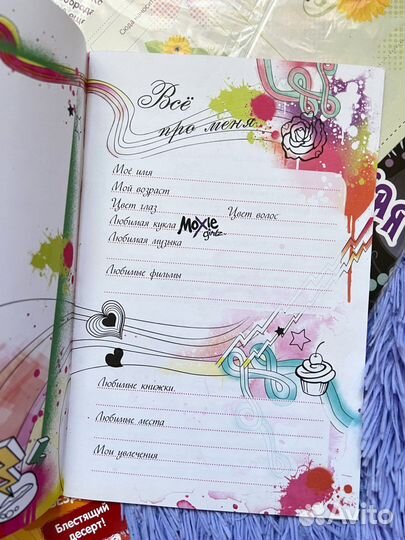 Всё
про меня...
Моё имя
Мой возраст
Цвет глаз Цвет волос
Любимая кукла Moxie girlz
Любимая музыка
Любимые фильмы
Любимые книжки
Любимые места
Мои увлечения
Блестящий
десерт!
Avito